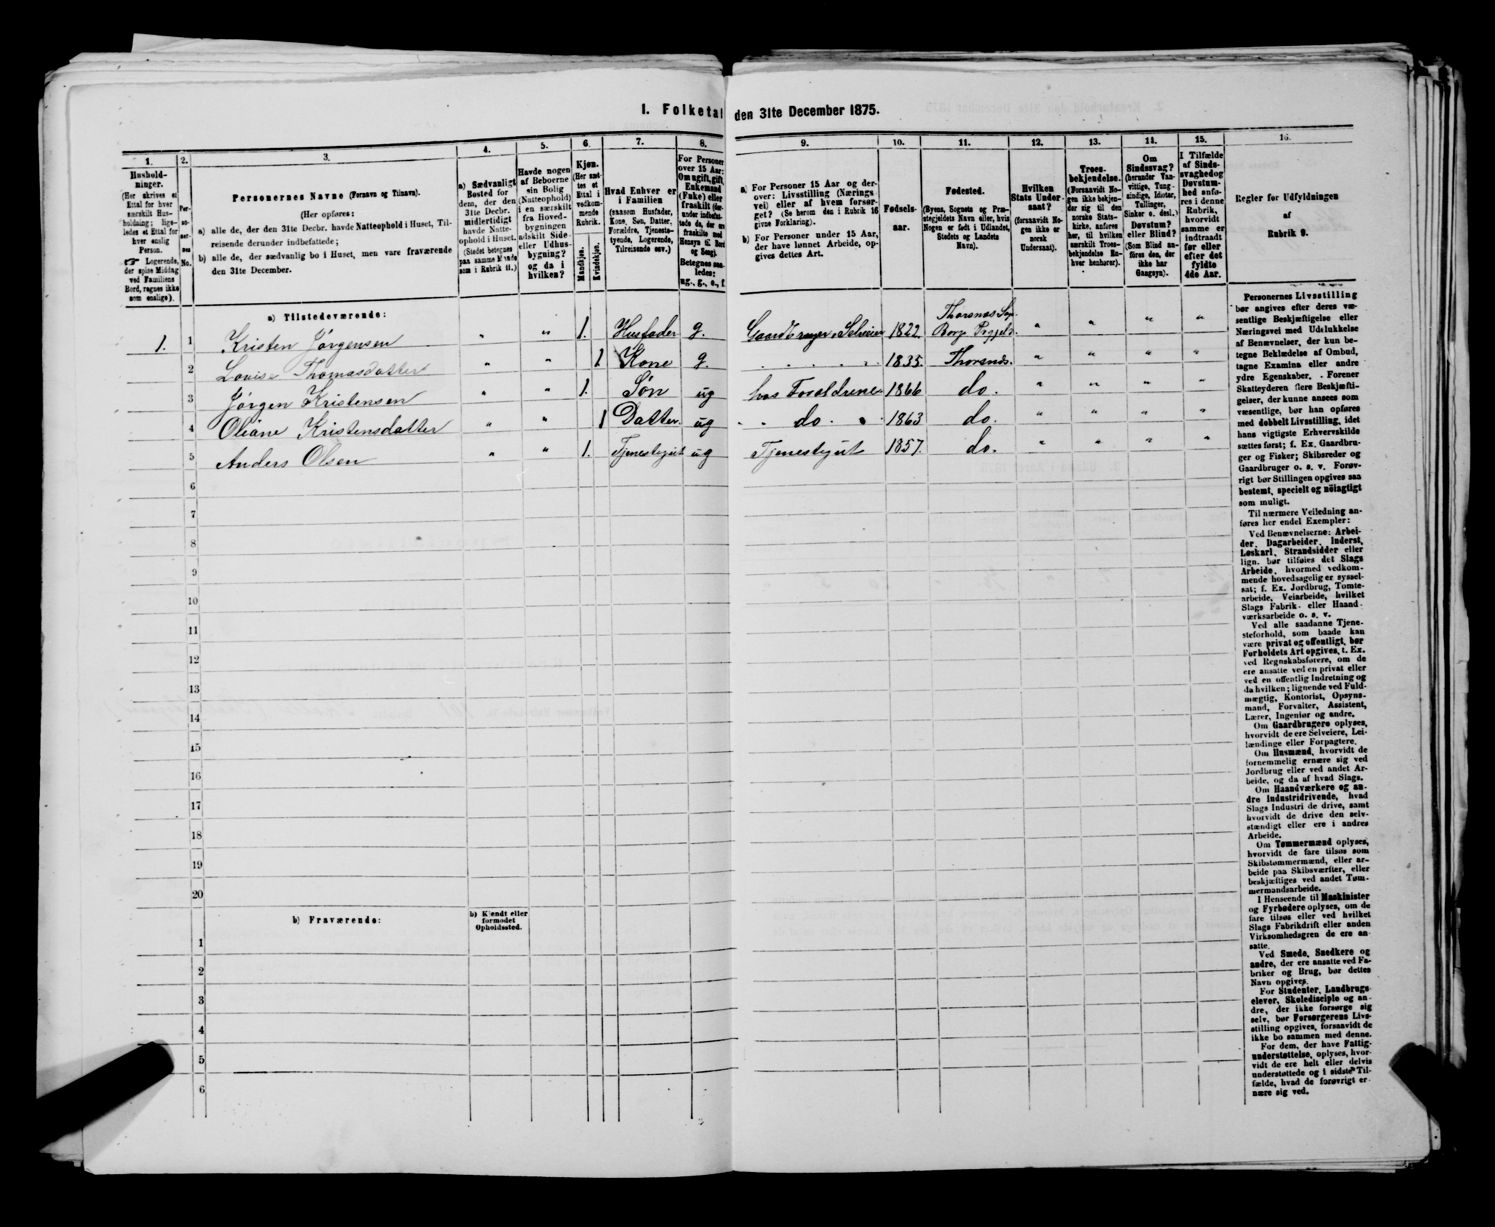 I. Folketal den 31te December 1875.
1.
Hushold-
ninger.
(Her skrives et
Ettal for hver
særskilt Hus-
holdning; lige-
ledes et Ettal for
hver enslig
Person.
Logerende,
der spise Middag
ved Familiens
Bord, regnes ikke
som enslige).
2.
Per-
so-
ner-
nes
No.
3.
Personernes Navne (Fornavn og Tilnavn).
(Her opføres:
a) alle de, der den 31te Decbr. havde Natteophold i Huset, Til-
reisende derunder indbefattede;
b) alle de, der sædvanlig bo i Huset, men vare fraværende
den 31te December.
4.
a) Sædvanligt
Bosted for
dem, der den
31te Decbr.
midlertidigt
havde Natte-
ophold i Huset.
(Stedet betegnes
paa samme Maade
som i Rubrik 11.)
5.
Havde nogen
af Beboerne
sin Bolig
(Natteophold)
i en særskilt
fra Hoved-
bygningen
adskilt Side-
eller Udhus-
bygning?
og da i
hvilken?
6.
Kjøn.
(Her sæt-
tes et
Ettal i
vedkom-
mende
Rubrik.
Mandkjøn.
Kvindekjøn.
7.
Hvad Enhver er
i Familien
(saasom Husfader,
Kone, Søn, Datter,
Forældre, Tjeneste-
tyende, Logerende,
Tilreisende osv.)
8.
For Personer
over 15 Aar:
Om ugift, gift,
Enkemand
(Enke) eller
fraskilt (der-
under indbefat-
tede de, der ere
fraskilte med
Hensyn til Bord
og Seng).
Betegnes saa-
ledes:
ug., g., e., f.
9.
a) For Personer 15 Aar og der-
over: Livsstilling (Nærings-
vei) eller af hvem forsør-
get? (Se herom den i Rubrik 16
givne Forklaring).
b) For Personer under 15 Aar,
der have lønnet Arbeide, op-
gives dettes Art.
10.
Fødsels-
aar.
11.
Fødested.
(Byens, Sognets og Præ-
stegjeldets Navn eller, hvis
Nogen er født i Udlandet,
Stedets og Landets
Navn).
12.
Hvilken
Stats Under-
saat?
(forsaavidt No-
gen ikke er
norsk
Undersaat).
13.
Troes-
bekjendelse.
(Forsaavidt No-
gen ikke bekjen-
der sig til den
norske Stats-
kirke, anføres
her, til hvilken
særskilt Troes-
bekjendelse En-
hver henhører).
14.
Om
Sindssvag?
(herunder Van-
vittige, Tung-
sindige, Idioter,
Tullinger,
Sinker o. desl.)
Døvstum?
eller Blind?
(Som Blind an-
føres den, der
ikke har
Gangsyn).
15.
I Tilfælde
af Sinds-
svaghed og
Døvstum-
hed anfø-
res i denne
Rubrik,
hvorvidt
samme er
indtraadt
før eller
efter det
fyldte
4de Aar.
16.
Regler for Udfyldningen
af
Rubrik 9.
a) Tilstedeværende:
1. 1 Kristen Jørgensen " " 1. Husfader g. Gaardbruger, Selveier 1822. Thorsnæs Sogn Borge Prgjeld. " " " "
2 Louise Thomasdatter " " 1 Kone g. 1835. Thorsnæs. " " " "
3 Jørgen Kristensen " " 1. Søn ug hos Forældrene 1866 do. " " " "
4 Oliane Kristensdatter " " 1 Datter. ug " do. " 1863 do. " " " "
5 Anders Olsen " " 1. Tjenestegut ug Tjenestegut 1857. do. " " " "
6
7
8
9
10
11
12
13
14
15
16
17
18
19
20
b) Fraværende:
b) Kjendt eller
formodet
Opholdssted.
1
2
3
4
5
6
Personernes Livsstilling
bør angives efter deres væ-
sentlige Beskjæftigelse eller
Næringsvei med Udelukkelse
af Benævnelser, der kun be-
tegne Beklædelse af Ombud,
tagne Examina eller andre
ydre Egenskaber. Forener
Skatteyderen flere Beskjæfti-
gelser, der kunne ansees som
væsentlige, bør han opføres
med dobbelt Livsstilling, idet
hans vigtigste Erhvervskilde
sættes først; f. Ex. Gaardbru-
ger og Fisker; Skibsreder og
Gaardbruger o. s. v. Forøv-
rigt bør Stillingen opgives saa
bestemt, specielt og nöiagtigt
som muligt.
Til nærmere Veiledning an-
føres her endel Exempler:
Ved Benævnelserne: Arbei-
der, Dagarbeider, Inderst,
Løskarl, Strandsidder eller
lign. bør tilføies det Slags
Arbeide, hvormed vedkom-
mende hovedsagelig er syssel-
sat; f. Ex. Jordbrug, Tomte-
arbeide, Veiarbeide, hvilket
Slags Fabrik- eller Haand-
værksarbeide o. s. v.
Ved alle saadanne Tjene-
steforhold, som baade kan
være privat og offentligt, bør
Forholdets Art opgives, f. Ex.
ved Regnskabsførere, om de
ere ansatte ved en privat eller
ved en offentlig Indretning og
da hvilken; lignende ved Fuld-
mægtig, Kontorist, Opsyns-
mand, Forvalter, Assistent,
Lærer, Ingeniør og andre.
Om Gaardbrugere oplyses,
hvorvidt de ere Selveiere, Lei-
lændinge eller Forpagtere.
Om Husmænd, hvorvidt de
fornemmelig ernære sig ved
Jordbrug eller ved andet Ar-
beide, og da af hvad Slags.
Om Haandværkere og an-
dre Industridrivende, hvad
Slags Industri de drive, samt
hvorvidt de drive den selv-
stændigt eller ere i andres
Arbeide.
Om Tømmermænd oplyses,
hvorvidt de fare tilsøs som
Skibstømmermænd, eller ar-
beide paa Skibsværfter, eller
beskjæftiges ved andet Tøm-
mermandsarbeide.
I Henseende til Maskinister
og Fyrbødere oplyses, om de
fare tilsøs eller ved hvilket
Slags Fabrikdrift eller anden
Virksomhedsgren de ere an-
satte.
Ved Smede, Snedkere og
andre, der ere ansatte ved Fa-
briker og Brug, bør dettes
Navn opgives.
For Studenter, Landbrugs-
elever, Skoledisciple og an-
dre, der ikke forsørge sig
selv, bør Forsørgerens Livs-
stilling opgives, forsaavidt de
ikke bo sammen med denne.
For dem, der have Fattig-
understøttelse, oplyses, hvor-
vidt de ere helt eller delvis
understøttede og i sidste Til-
fælde, hvad de forøvrigt er-
nære sig ved.